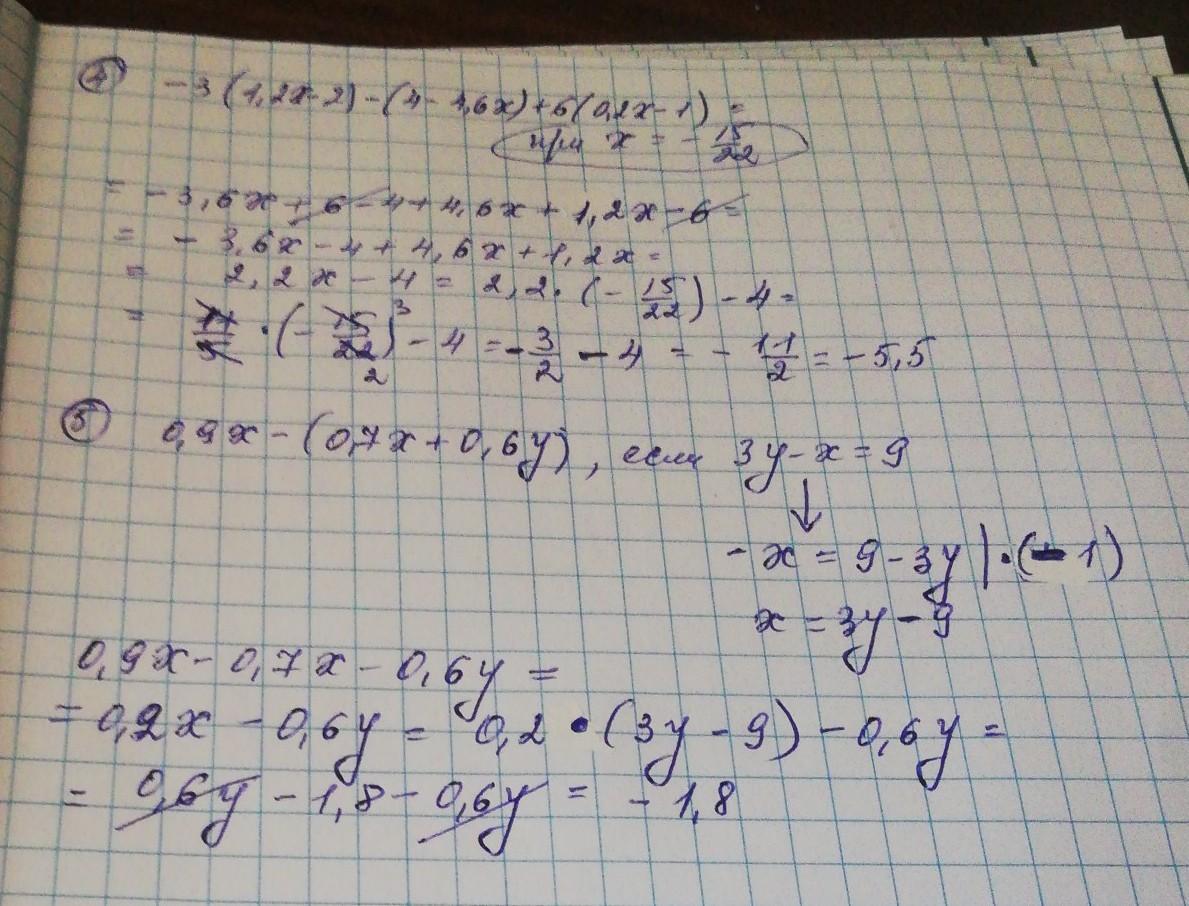 ④ -3(1,2x-2)-(4-4,6x)+6(0,2x-1)=
при x = -15/22
= -3,6x+6-4+4,6x+1,2x-6=
= -3,6x-4+4,6x+1,2x=
= 2,2x-4= 2,2·(-15/22)-4=
= 11/5·(-15/22)³₂-4=-3/2-4=-11/2=-5,5
⑤ 0,9x-(0,7x+0,6y), если 3y-x=9
↓
-x=9-3y|·(-1)
x=3y-9
0,9x-0,7x-0,6y=
=0,2x-0,6y= 0,2·(3y-9)-0,6y=
= 0,6y-1,8-0,6y= -1,8